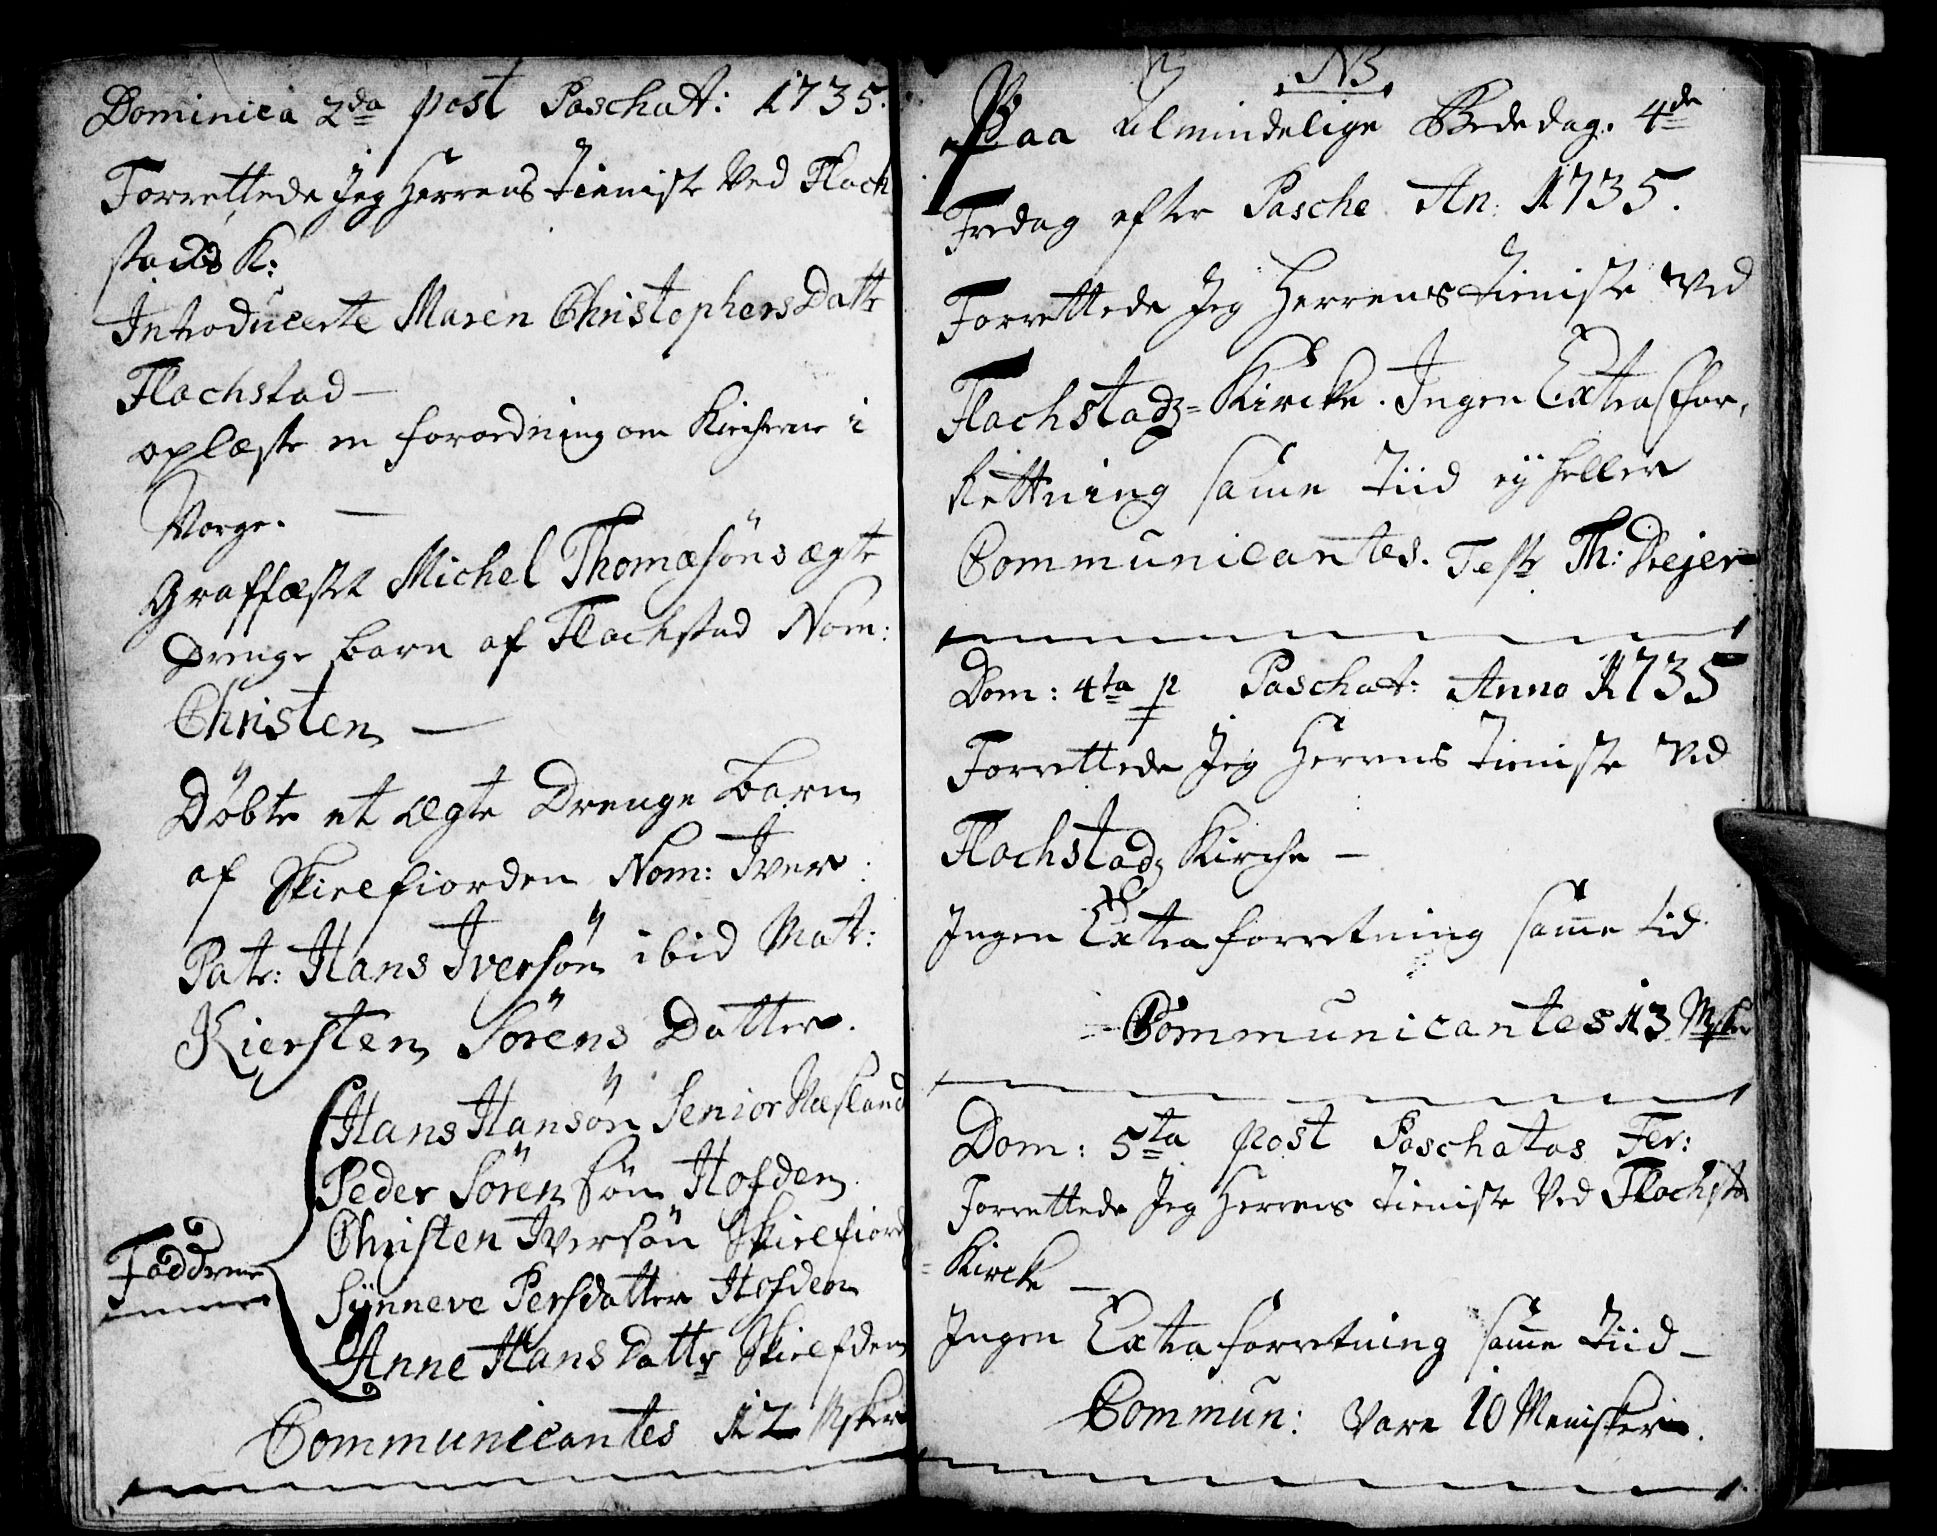 Dominica 2da post Paschat: 1735.
Forrettede Jeg Herrens Tieniste Ved Flach
stads K:
Introducerte Maren Christophers Dattr
Flachstad —
oplæste en forordning om Kircherne i
Norge. —
Graffæstet Michel Thomæsöns ægte
Drenge barn af Flachstad Nom:
Christen —
Döbte et ægte Drenge barn
af Skielfiorden Nom: Iver
Patr: Hans Iversön ibid Matt:
Kiersten Sörens Datter.
Hans Hansön Senior Næsland
Peder Sören Sön Hofden
Christen Iversön Skielfiord
Faddrene
Synneve Persdatter Hofden
Anne Hans Dattr Skielfden
Communicantes 12 Msker
NB
Paa Almindelige Bededag. 4de
Fredag efter Pasche An: 1735.
Forrettede Jeg Herrens Tieniste Ved
Flachstadz Kircke. Ingen Extra for,
Rettning same Tiid ey heller
Communicantes. Test Th: Dejer
Dom: 4ta p Paschat: Anno 1735
Forrettede Jeg Herrens Tieniste Ved
Flachstadz Kirche —
Ingen Extra forretning same tid
Communicantes 13 Msker
Dom: 5ta post Paschatos Fer:
Forrettede Jeg Herrens Tieniste Ved Flachsta
Kircke —
Ingen Extra forretning same Tiid —
Commun: Vare 10 Menisker.